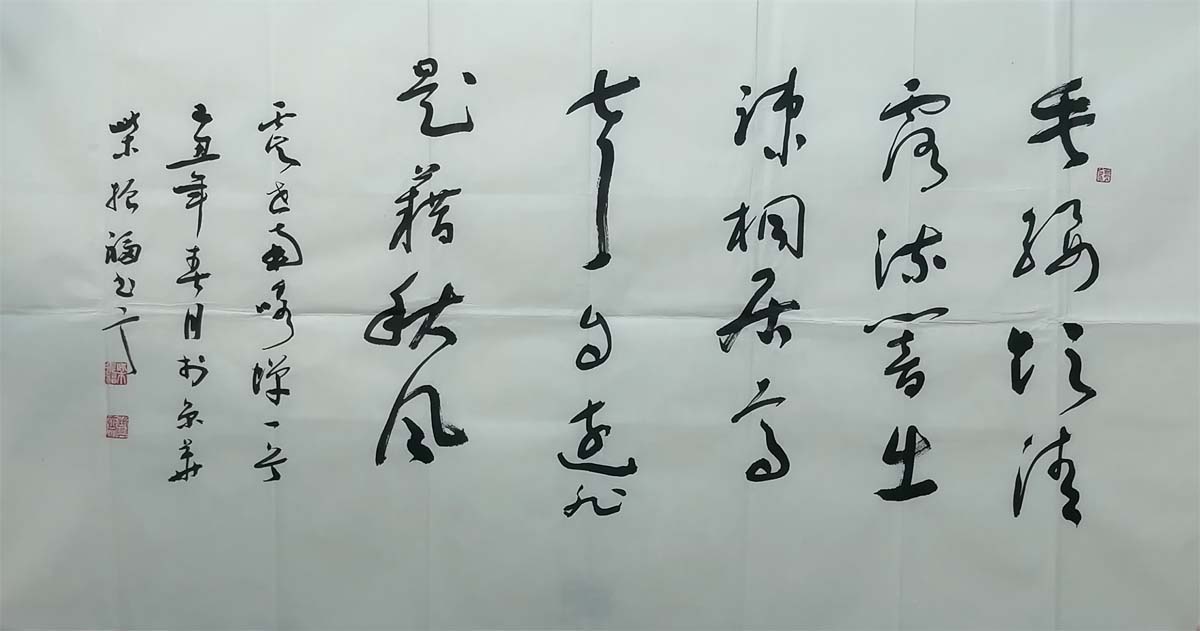 垂緌飲清
露流響出
疎桐居高
聲自遠非
是藉秋風
虞世南咏蟬一首
己丑年春月於京華
柴振福书